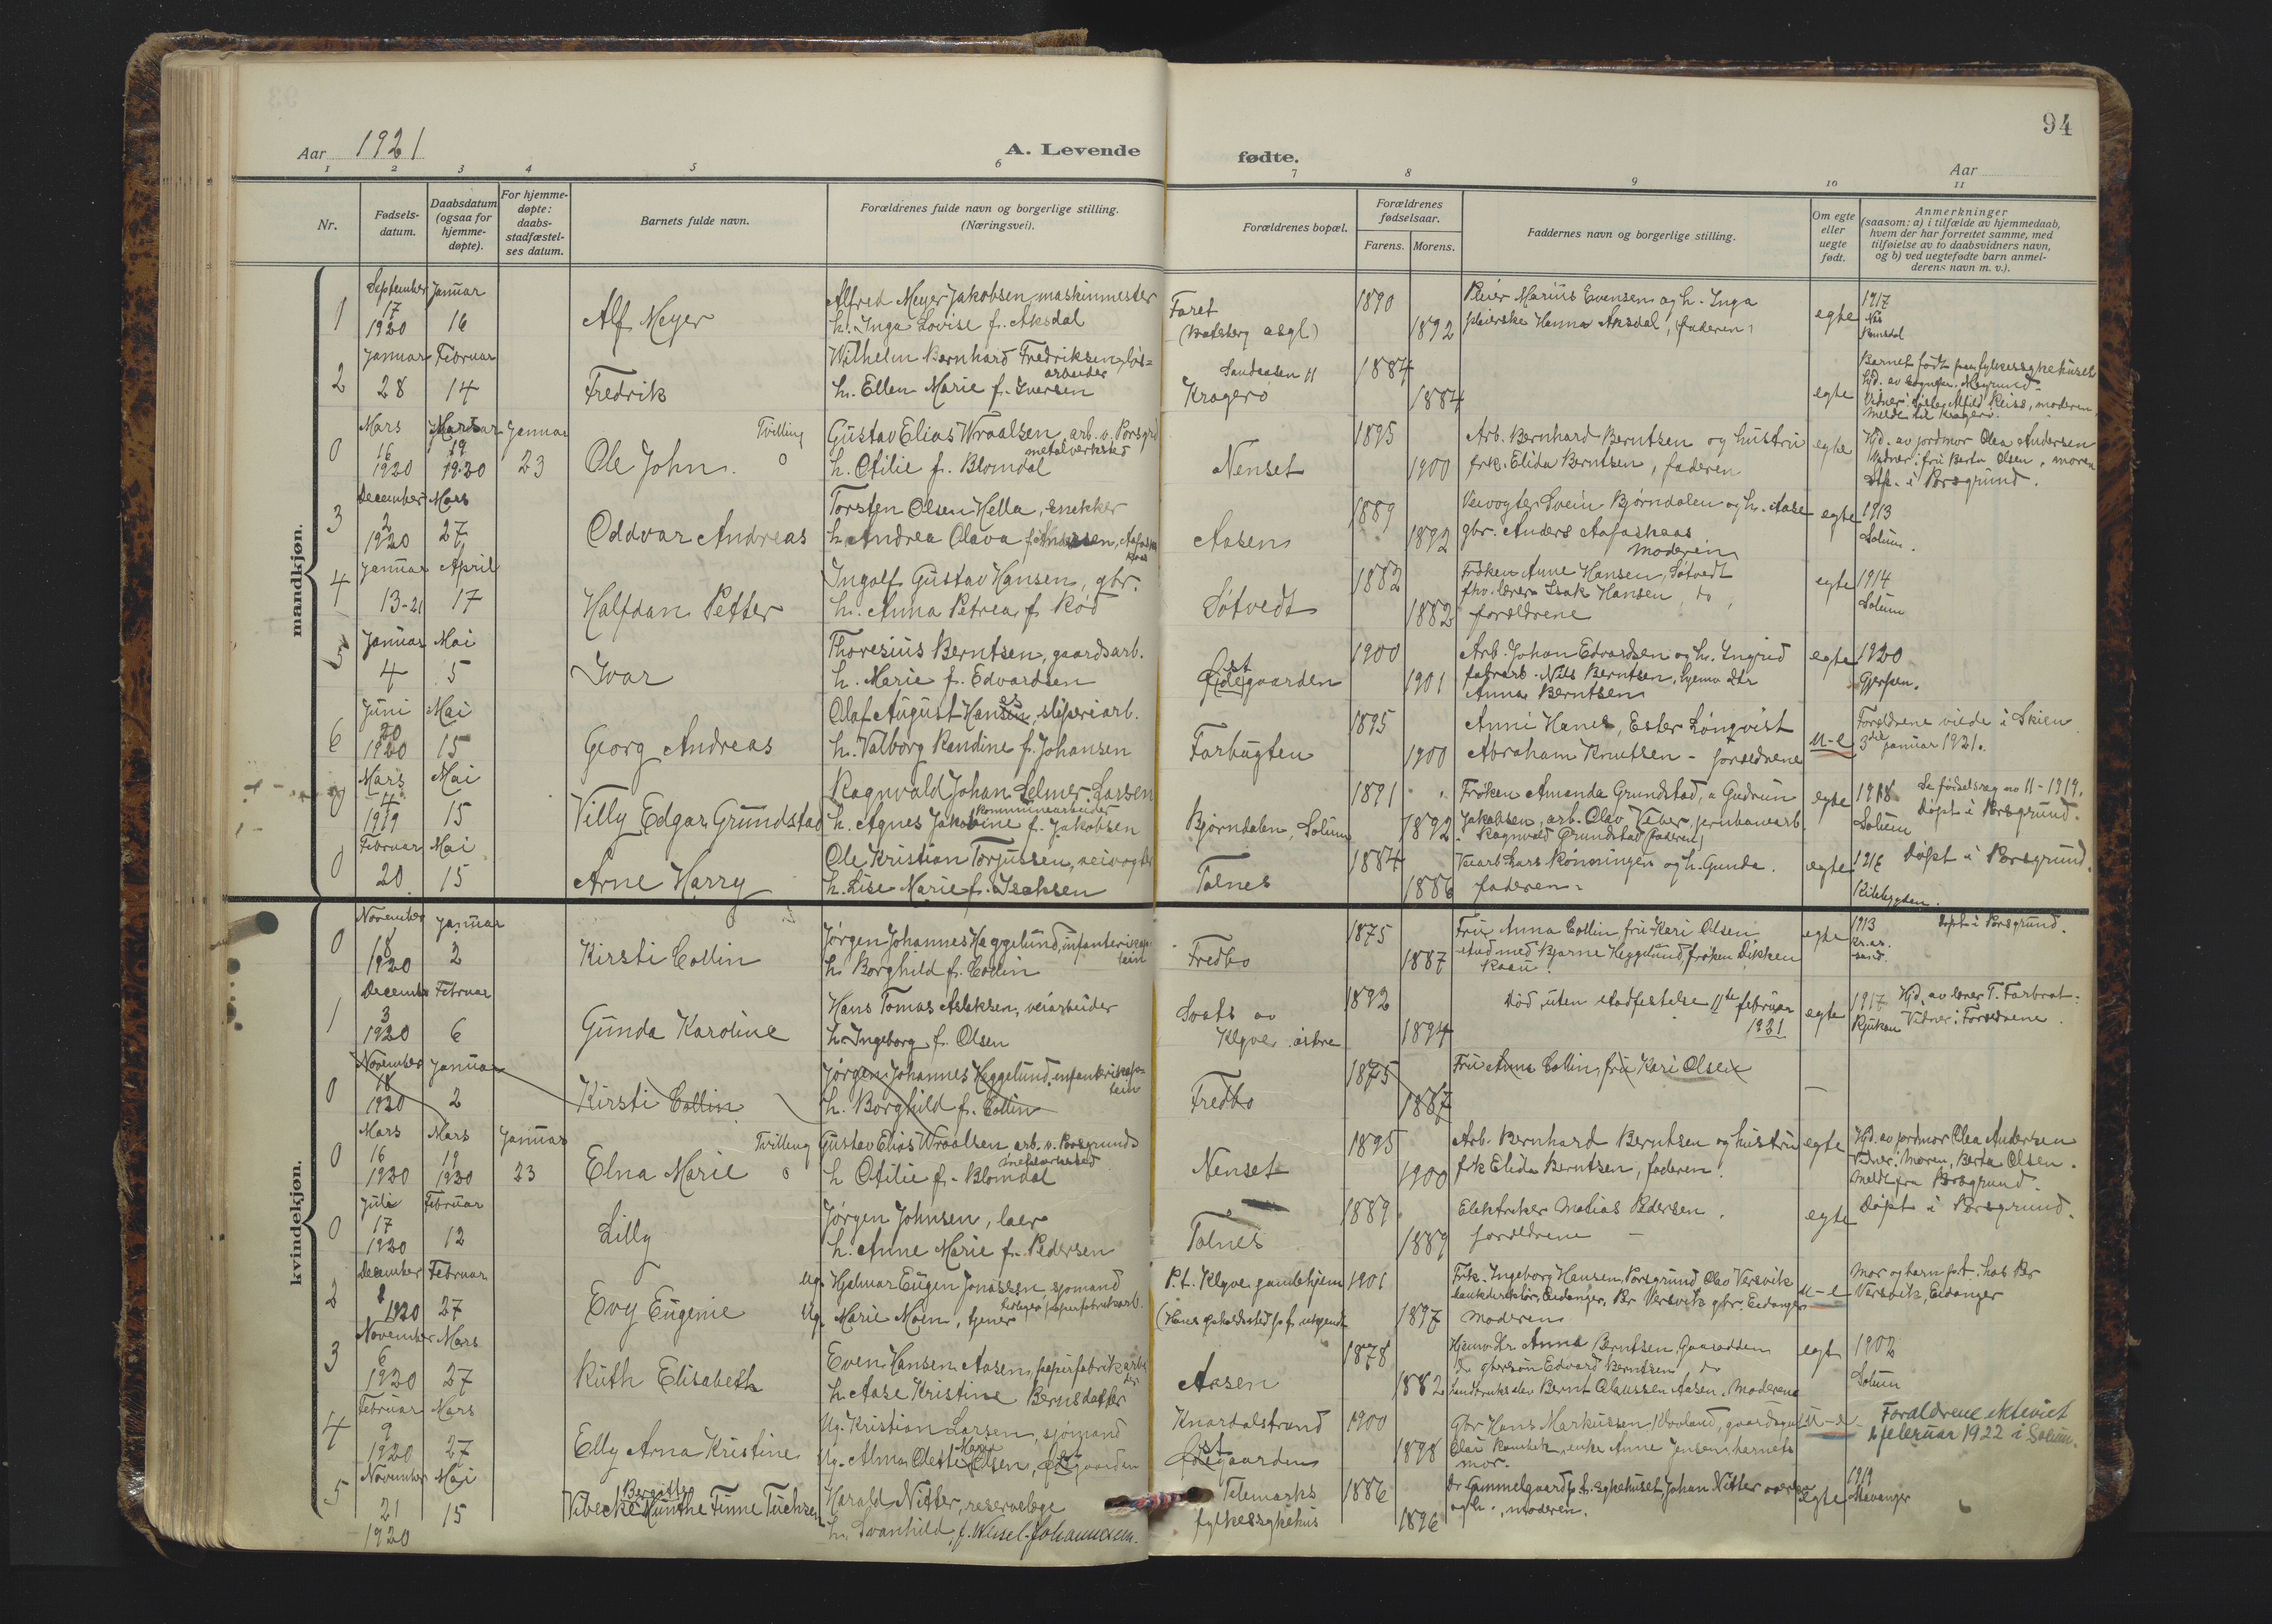 94
Aar 1921
A. Levende
fødte.
Aar
1 2 3 4 5 6 7 8 9 10 11
Nr.
Fødsels-
datum.
Daabsdatum
(ogsaa for
hjemme-
døpte).
For hjemme-
døpte:
daabs-
stadfæstel-
ses datum.
Barnets fulde navn.
Forældrenes fulde navn og borgerlige stilling.
(Næringsvei).
Forældrenes bopæl.
Forældrenes
fødselsaar.
Farens. Morens.
Faddernes navn og borgerlige stilling.
Om egte
eller
uegte
født.
Anmerkninger
(saasom: a) i tilfælde av hjemmedaab,
hvem der har forrettet samme, med
tilføielse av to daabsvidners navn,
og b) ved uegtefødte barn anmel-
derens navn m. v.).
mandkjøn.
1
September
17
1920
Januar
16
Alf Meyer
Alfred Meyer Jakobsen, maskinmester
h. Inga Lovise f. Aksdal
Faret
1890
1892
Pleier Marius Evensen og h. Inga
pleierske Hanna Aksdal, faderen
egte
1917
2
Januar
28
Februar
14
Fredrik
Wilhelm Bernhard Fredriksen, løs-
arbeider
h. Ellen Marie f. Iversen
Kragerø
1884
1884
egte
Barnet født paa fylkessykehuset
0
Mars
16
1920
Mars
19
1920
Januar
23
Ole John.
Tvilling
Gustav Elias Wraalsen, arb. v. Porsgr.
metalverksted
h. Otilie f. Blomdal
Nenset
1895
1900
Arb. Bernhard Berntsen og hustru
frk. Elida Berntsen, faderen
egte
Hjd. av jordmor Olea Andersen
Vidner: fru Berta Olsen, moren
i Porsgrund.
3
December
2
1920
Mars
27
Oddvar Andreas
Torsten Olsen Hella, snekker
h. Andrea Olava
Aasen
1889
1892
Veivogter Svein Bjørndalen og h. Aase
gbr. Anders Aafaskaas
moderen
egte
1913
Solum.
4
Januar
13-21
April
17
Halfdan Petter
Ingolf Gustav Hansen, gbr.
h. Anna Petrea f. Rød
Søtvedt
1882
1882
Frøken Anne Hansen, Søtvedt
fhv. lærer Isak Hansen, do,
forældrene
egte
1914
Solum
5
Januar
4
Mai
5
Ivar
Thoresius Berntsen, gaardsarb.
h. Marie f. Edvardsen
1900
1901
Arb. Johan Edvardsen og h. Ingrid
fabrarb. Nils Berntsen, hjemv. dtr
Anna Berntsen
egte
1920
Gjerpen.
6
Juni
20
1920
Mai
15
Georg Andreas
Olaf August Hansen, sliperiarb.
h. Valborg Randine f. Johansen
Farbugten
1895
1900
Anni Hanes, Ester Lönqvist
Abraham Knutsen - forældrene
u-e
Forældrene viede i Skien
3die januar 1921.
0
Mars
4
1919
Mai
15
Villy Edgar Grundstad
Ragnvald Johan Selmer Larsen
kommunearbeider
h. Agnes Jakobine f. Jakobsen
Bjørndalen, Solum
1891
1892
Frøken Amanda Grundstad, " Gudrun
Jakobsen, arb. Olav Veber, jernbanearb.
Ragnvald Grundstad (faderen)
egte
1918
Solum
Se fødselsreg no 11 - 1919.
Døpt i Porsgrund.
0
Februar
20
Mai
15
Arne Harry
Ole Kristian Torjussen, veivogter
h. Lise Marie f. Isaksen
Tolnes
1884
1886
Veiarb. Lars Rønningen og h. Gunda.
faderen.
egte
1916
Døpt i Porsgrund.
Kilebygden.
kvindekjøn.
0
November
18
1920
Januar
2
Kirsti Collin
Jørgen Johannes Heggelund, infanterikap-
tein
h. Borghild f. Collin
Fredbo
1875
1887
Fru Anna Collin, fru Kari Olsen
stud med Bjarne Heggelund, frøken Dikken
egte
1913
Døpt i Porsgrund.
1
December
3
1920
Februar
6
Gunda Karoline
Hans Tomas Aslaksen, veiarbeider
h. Ingeborg f. Olsen
Klyve østre
1892
1894
Død uten stadfestelse 11te februar
1921
egte
1917
Rjukan
Hjd. av lærer T. Farbrot:
Vidner: Forældrene.
0
November
18
1920
Januar
2
Kirsti Collin
Jørgen Johannes Heggelund, infanterikap-
tein
h. Borghild f. Collin
Fredbo
1875
1887
Fru Anna Collin, fru Kari Olsen
0
Mars
16
1920
Mars
19
1920
Januar
23
Elna Marie
Tvilling
Gustav Elias Wraalsen, arb. v. Porsgrunds
h Otilie f. Blomdal
Nenset
1895
1900
Arb. Bernhard Berntsen og hustru
frk Elida Berntsen, faderen
egte
Hjd. av jordmor Olea Andersen
Vidner: Moren, Berta Olsen.
Meldt fra Porsgrund
0
Juli
17
1920
Februar
12
Lilly
Jørgen Johnsen, laer
h. Anne Marie f. Pedersen
Tolnes
1889
1889
Elektriker Matias Pedersen
forældrene
egte
Døpt i Porsgrund.
2
December
1920
Februar
27
Evy Eugenie
Ug. Hjalmar Eugen Jonassen, sjømand
Ug. Marie Moen, tjener
P.t. Klyve gamlehjem
1901
1897
Frk. Ingeborg Hansen, Porsgrund, Olav Versvik
bankdirektør, Eidanger, Per Versvik gbr. Eidanger
moderen
u-e
Mor og barn p.t. hos Per
Versvik, Eidanger
3
November
6
1920
Mars
27
Ruth Elisabeth
Even Hansen Aasen, papirfabrikarbei
der
h. Aase Kristine Berntsdatter
Aasen
1878
1882
Hjemv. Dtr Anna Berntsen,
gbrsøn Edvard Berntsen do
Bernt Claussen Aasen. Moderen
egt
1902
Solum
4
Februar
9
1920
Mars
27
Elly Arna Kristine
Ug. Kristian Larsen, sjømand
Knardalstrand
1900
1898
Gbr Hans Markussen
enke Anne Jensen, barnets
mor.
u-e
Forældrene ekteviet
februar 1922 i Solum.
5
November
21
1920
Mai
15
Bergitte
Vibecke Munthe Finne Tuchsen
Harald Nitter, reservelæge
h. Svanhild, f. Johannesen.
Telemarks
fylkessykehus
1886
1896
Dr Gammelgaard, Johan Nitter
og h., moderen.
egte
1919
Stavanger